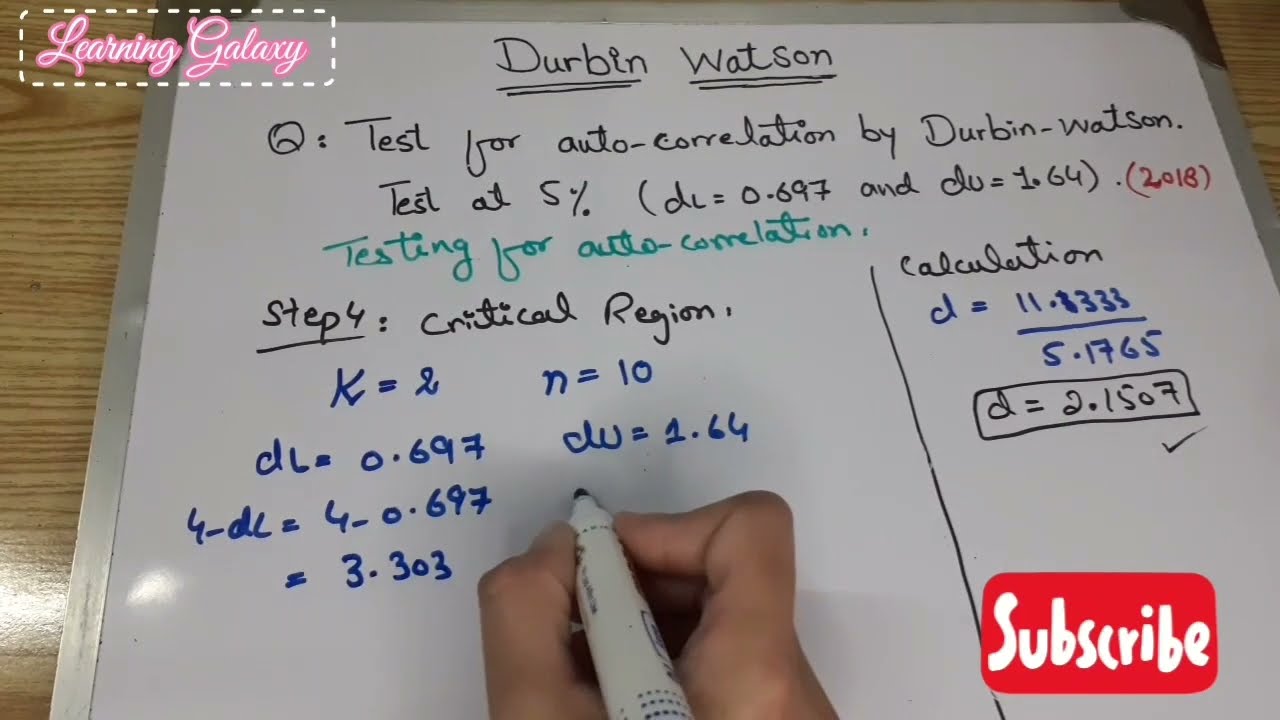 Learning Galaxy
Durbin Watson
Q: Test for auto-correlation by Durbin-Watson.
Test at 5% (dL = 0.697 and du = 1.64). (2018)
Testing for auto-correlation.
Step 4: Critical Region.
K = 2 n = 10
dL = 0.697 du = 1.64
4-dL = 4-0.697
= 3.303
Calculation
d = 11.1333
5.1765
d = 2.1507
Subscribe